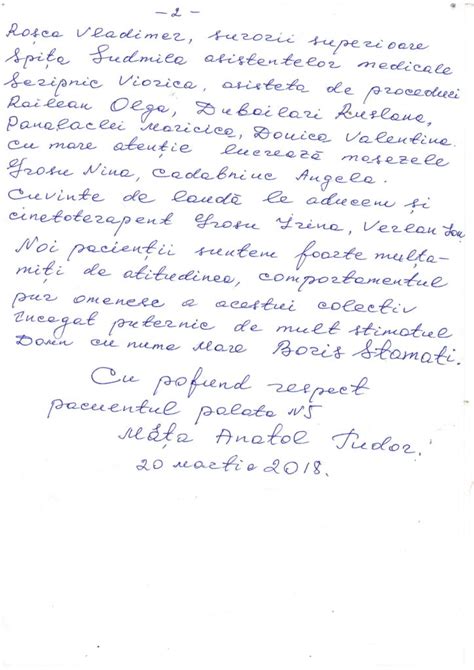 - 2 -
Roșca Vladimer, surorii superioare
Spița Ludmila asistentelor medicale
Scripnic Viorica, asisteta de proceduri
Railean Olga, Dubailari Ruslana,
Panaraclei Maricica, Donica Valentina.
cu mare atenție lucrează masezele
Grosu Nina, Cadabniuc Angela.
Cuvinte de laudă le aducem și
cinetoterapent Grosu Irina, Verlan Ion
Noi pacienții suntem foarte mulța-
miți de atitudinea, comportamentul
pur omenesc a acestui colectiv
încegat puternic de mult stimatul
Domn cu nume Mare Boris Stamati.
Cu pofund respect
pacuentul palata N5
Mâța Anatol Tudor.
20 martie 2018.